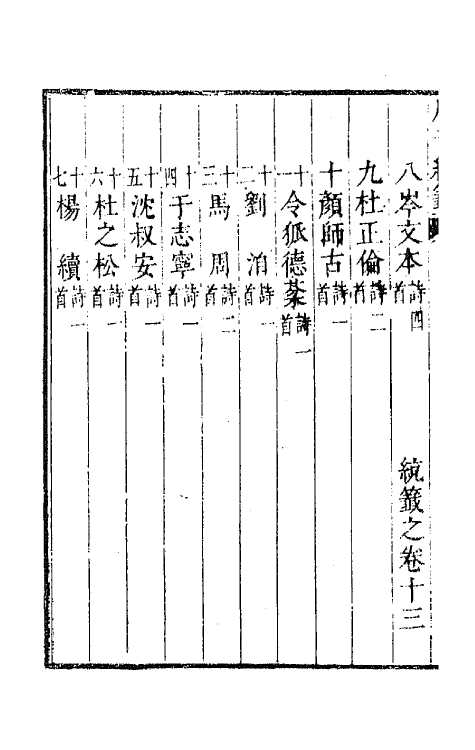 八岑文本詩四首 統籖之卷十三
九杜正倫詩二首
十顔師古詩一首
十一令狐德棻詩一首
十二劉洎詩一首
十三馬周詩二首
十四于志寧詩一首
十五沈叔安詩一首
十六杜之松詩一首
十七楊續詩一首